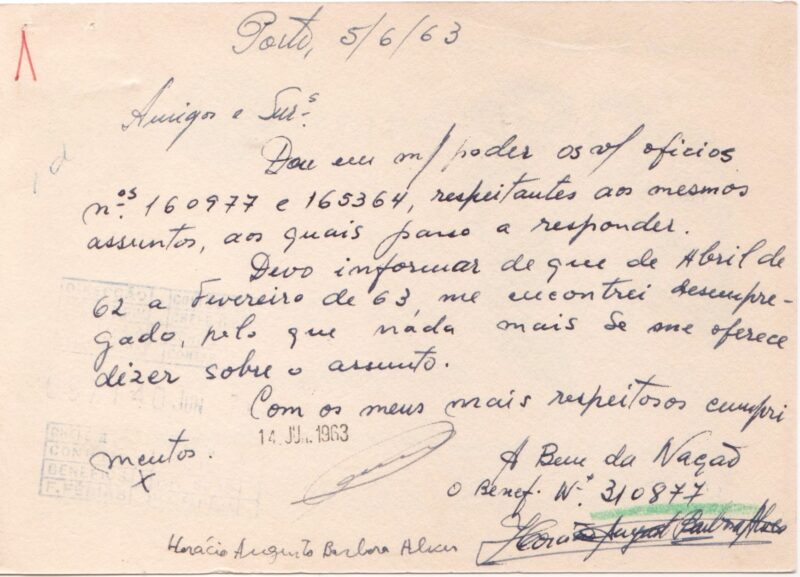 Porto, 5/6/63
Amigos e Snr.s
Dou em m/ poder os v/ oficios
n.os 160977 e 165364, respeitantes aos mesmos
assuntos, aos quais passo a responder.
Devo informar de que de Abril de
62 a Fevereiro de 63, me encontrei desempre-
gado, pelo que náda mais se me oferece
dizer sobre o assunto.
Com os meus mais respeitosos cumpri
mentos.
14 JUN. 1963
A Bem da Nação
O Benef. Nº 310877
Horácio Augusto Barbosa Alves
Horácio Augusto Barbosa Alves